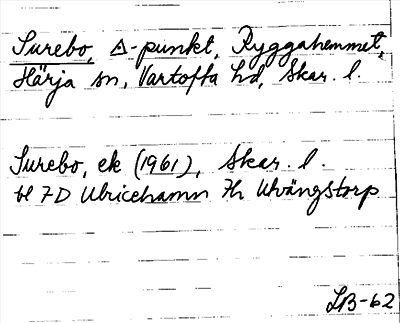 Surebo, △-punkt, Ryggahemmet,
Härja sn, Vartofta hd, Skar. l.
Surebo, ek (1961), Skar. l.
bl 7D Ulricehamn 7h Utvängstorp
LB-62